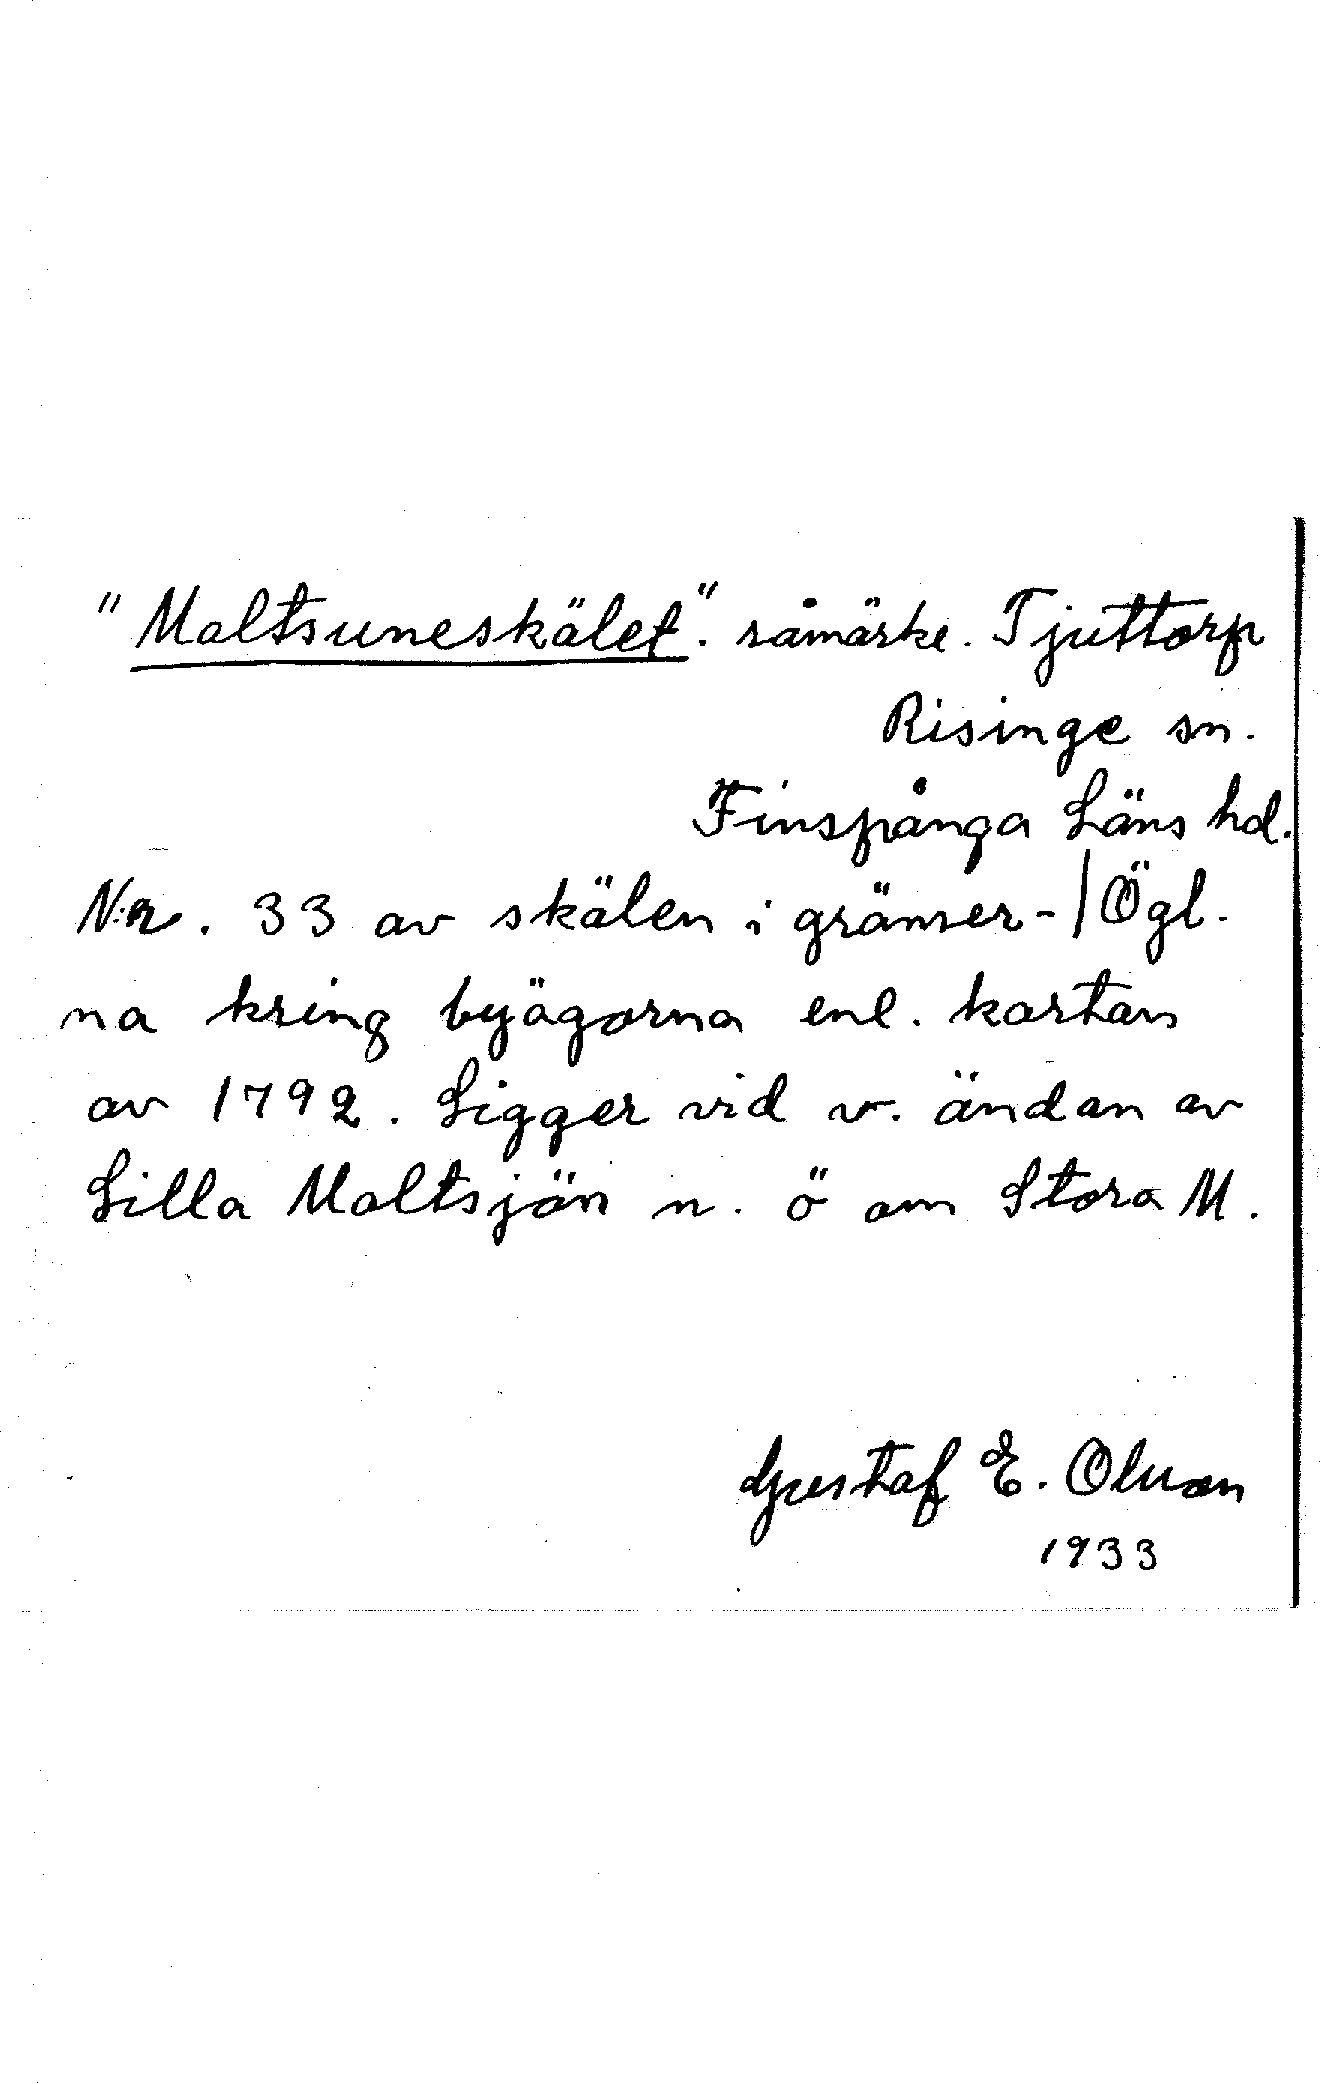 "Maltsuneskälet". råmärke. Tjuttorp
Risinge sn.
Finspånga Läns hd.
N:r. 33 av skälen i gränser-/Ögl.
na kring byägorna enl. kartan
av 1792. Ligger vid v. ändan av
Lilla Maltsjön n. ö om Stora M.
Gustaf E. Olsson
1933